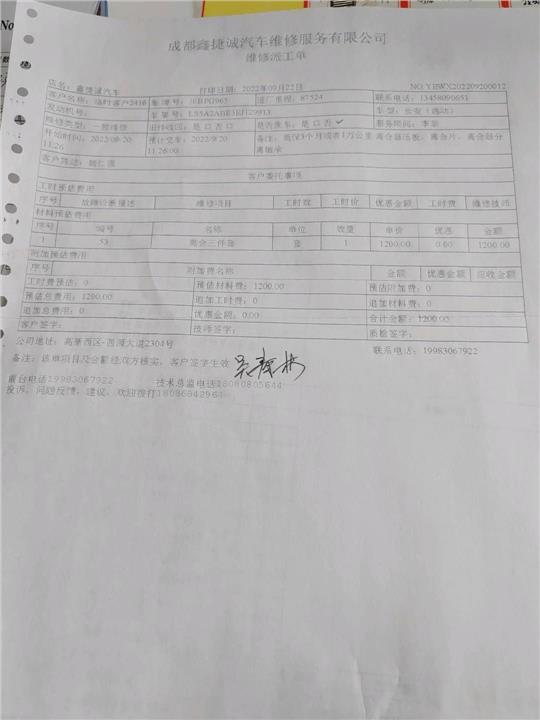 成都鑫捷诚汽车维修服务有限公司
维修派工单
店名：鑫捷诚汽车 打印日期：2022年09月22日 NO.YJBWX202209200012
客户名称：临时客户2416 车牌号： 进厂里程：87524 联系电话：13458090651
发动机号： 车架号： 车型：长安（逸动）
维修类型：一般维修 旧件收回：是 口否 口 是否洗车：是 口否 ✓ 服务顾问：李
开始时间：2022/09/20 11:26 预计交车：2022/9/20 11:26:00 备注：质保3个月或者1万公里 离合器压板，离合片，离合器分离轴承
客户陈述：
客户委托事项
工时预估费用
序号 故障诊断描述 维修项目 工时数 工时价 优惠金额 工时费 维修技师
材料预估费用
序号 编号 名称 单位 数量 单价 优惠 金额
1 53 离合三件套 套 1 1200.00 0.00 1200.00
附加预估费用
序号 附加费名称 金额 优惠金额 应收金额
工时费预估：0 预估材料费：1200.00 预估附加费：0
预估总费用：1200.00 追加工时费：0 追加材料费：0
追加总费用：0 优惠金额：0.00 合计金额：1200.00
客户签字： 技师签字： 质检签字：
公司地址：高新西区-西源大道2304号 联系电话：19983067922
备注：该单项目及金额经双方核实，客户签字生效
前台电话19983067922 技术总监电话18080805644
投诉，问题反馈，建议，欢迎拨打18086842964